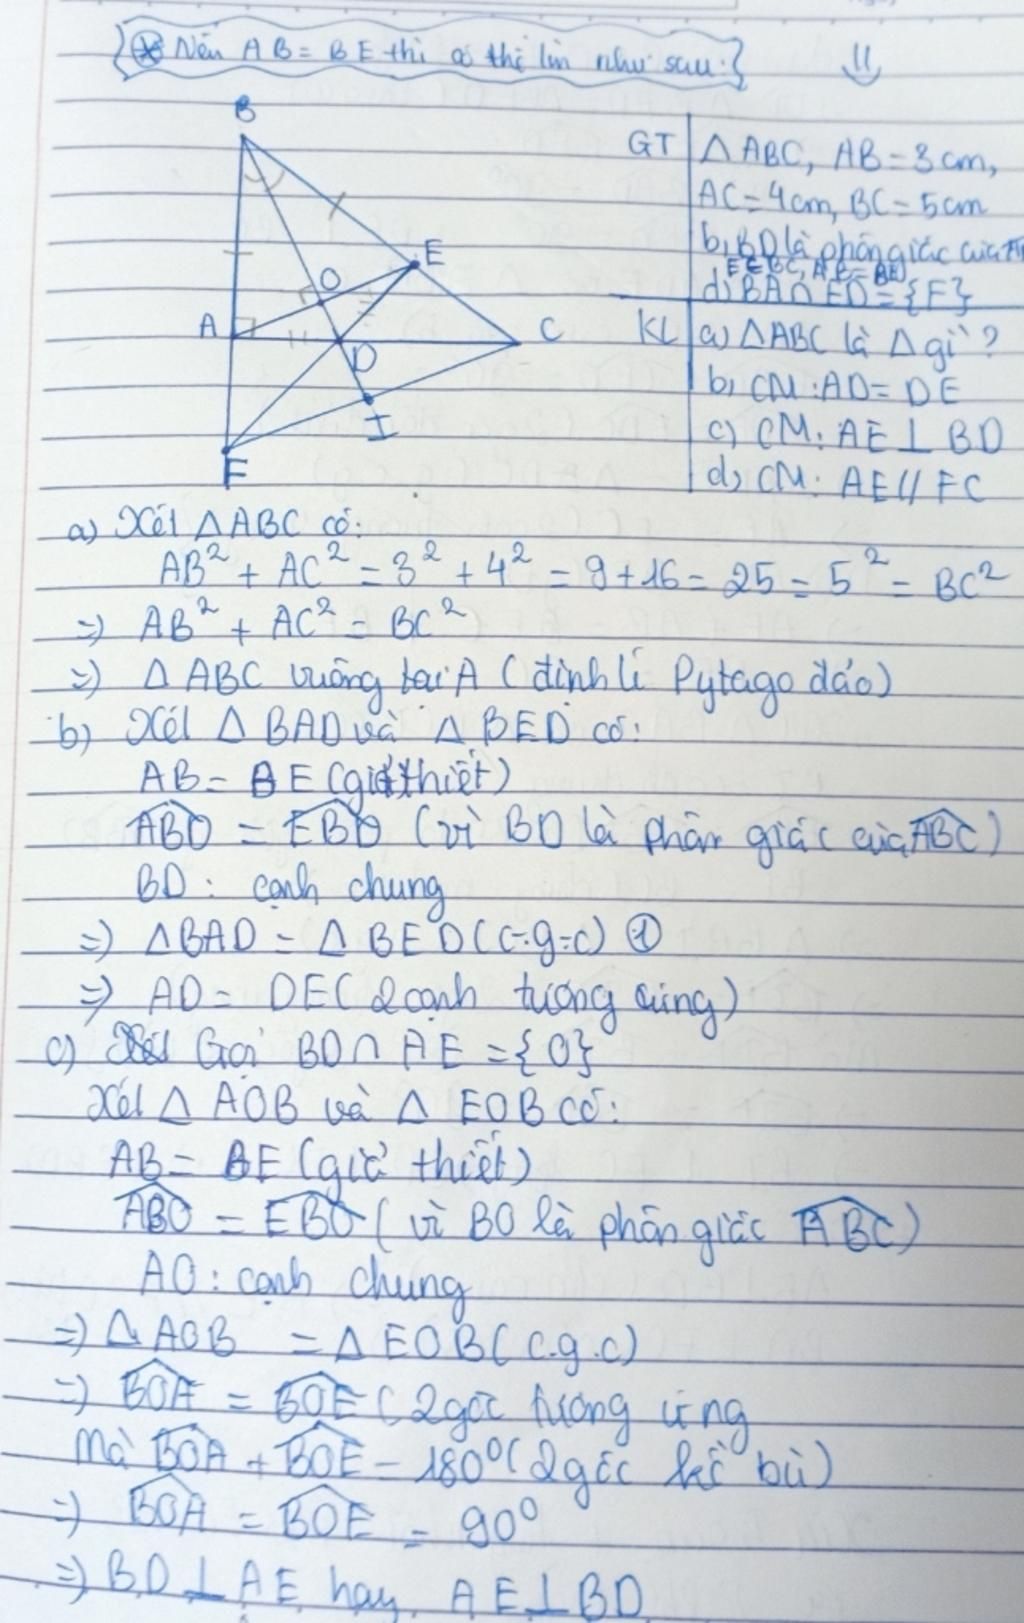 ⊛ Nếu AB = BE thì có thể làm như sau:
B
E
O
A
C
D
I
F
GT
△ABC, AB = 3cm,
AC = 4cm, BC = 5cm
b, BD là phân giác của
E ∈ BC, AB = BE
d, BA ∩ ED = {F}
KL
a) △ABC là △ gì?
b, CM: AD = DE
c) CM: AE ⊥ BD
d, CM: AE // FC
a) Xét △ABC có:
AB² + AC² = 3² + 4² = 9 + 16 = 25 = 5² = BC²
=) AB² + AC² = BC²
=) △ABC vuông tại A (định lí Pytago đảo)
b) Xét △BAD và △BED có:
AB = BE (giả thiết)
ABD = EBD (vì BD là phân giác của ABC)
BD: cạnh chung
=) △BAD = △BED (c-g-c) ①
=) AD = DE (2 cạnh tương ứng)
c) Gọi BD ∩ AE = {O}
Xét △AOB và △EOB có:
AB = BE (giả thiết)
ABO = EBO (vì BO là phân giác ABC)
AO: cạnh chung
=) △AOB = △EOB (c.g.c)
=) BOA = BOE (2 góc tương ứng
Mà BOA + BOE = 180° (2 góc kề bù)
=) BOA = BOE = 90°
=) BD ⊥ AE hay AE ⊥ BD